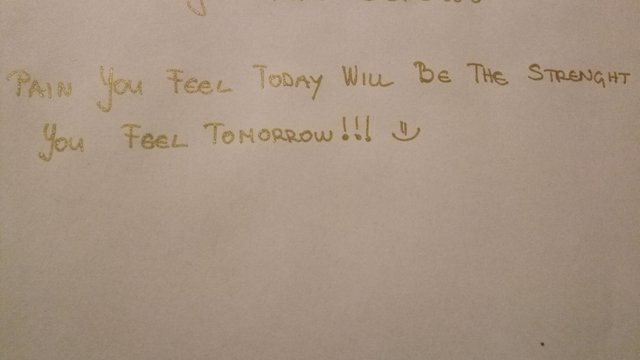 Pain You Feel Today Will Be The Strenght
You Feel Tomorrow!!! =)